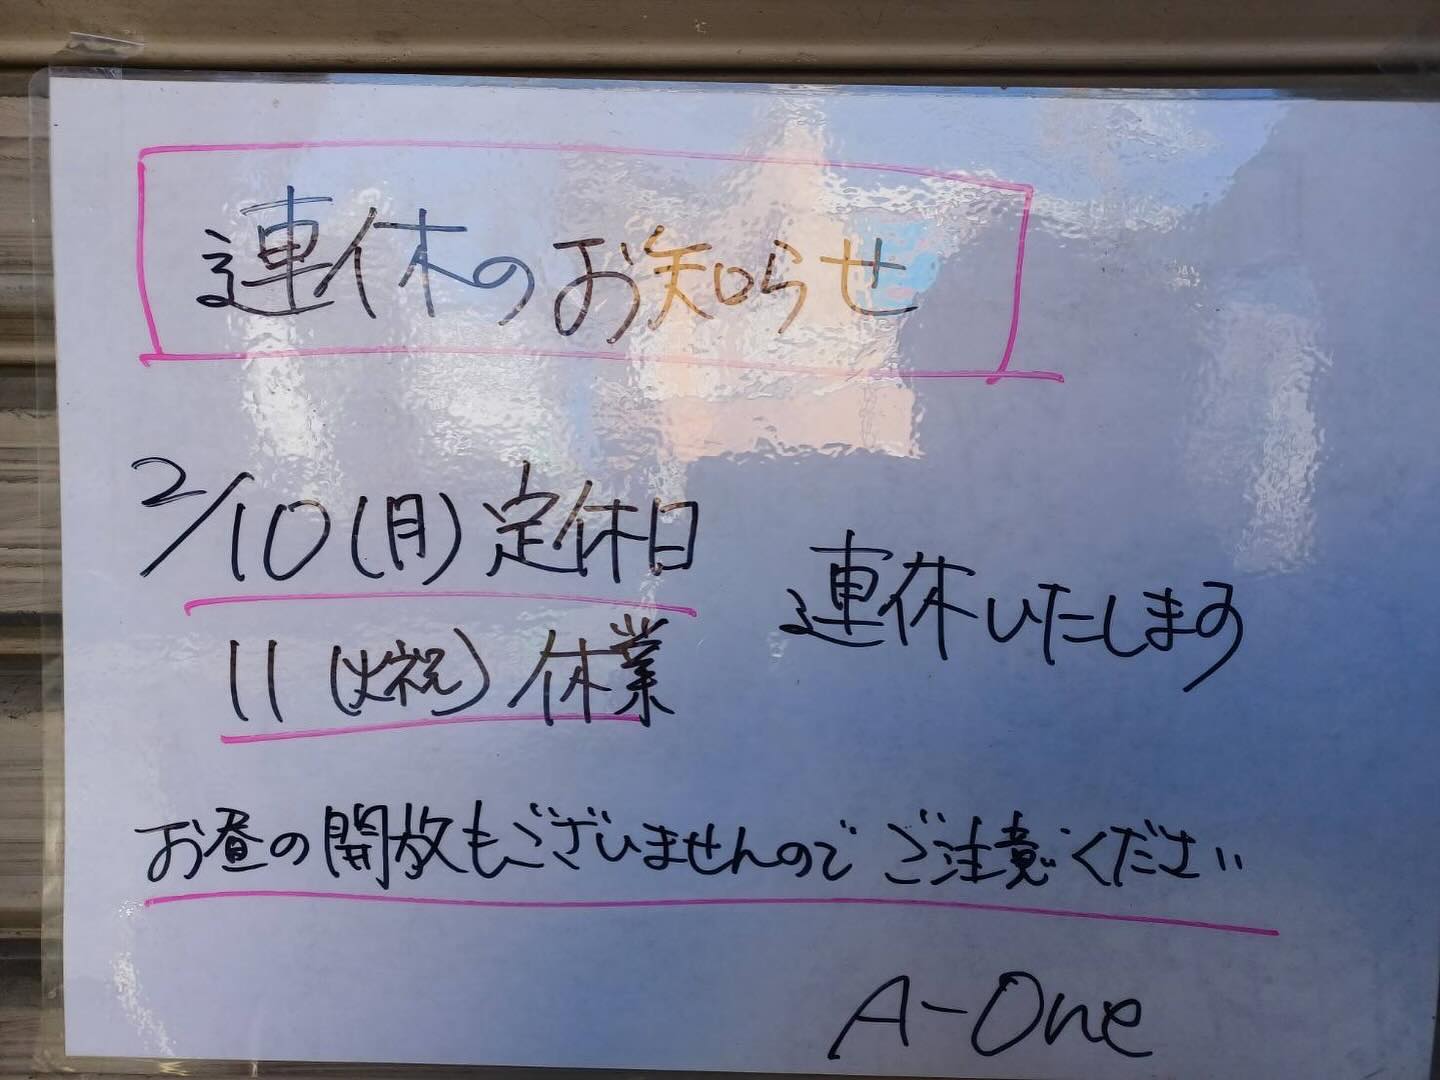 連休のお知らせ
2/10(月)定休日
連休いたします
11(火祝)休業
お昼の開放もございませんので ご注意ください
A-One